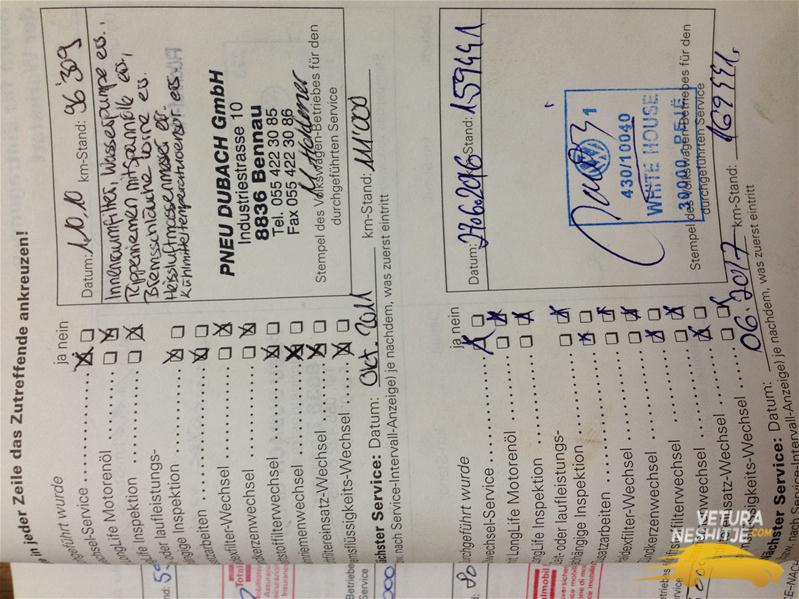 in jeder Zeile das Zutreffende ankreuzen!
geführt wurde
ja nein
chsel-Service
ongLife Motorenöl
ife Inspektion
oder laufleistungs-
gige Inspektion
zarbeiten
xfilter-Wechsel
kerzenwechsel
stofffilterwechsel
nriemenwechsel
tfiltereinsatz-Wechsel
nsflüssigkeits-Wechsel
ächster Service: Datum: Okt. 2011 km-Stand: 111'000
w. nach Service-Intervall-Anzeige) je nachdem, was zuerst eintritt
Datum: 1.10.10 km-Stand: 96'309
Innenraumfilter, Wasserpumpe ers.
Rippenriemen mit Spannrolle ers,
Bremsschläuche vorne ers.
Heissluftmassenmesser ers.
Kühlmitteltemperatursensor ers
PNEU DUBACH GmbH
Industriestrasse 10
8836 Bennau
Tel. 055 422 30 85
Fax 055 422 30 86
Stempel des Volkswagen-Betriebes für den
durchgeführten Service
urchgeführt wurde
ja nein
wechsel-Service
it LongLife Motorenöl
ongLife Inspektion
eit- oder laufleistungs-
hängige Inspektion
satzarbeiten
radexfilter-Wechsel
ündkerzenwechsel
stofffilterwechsel
nsatz-Wechsel
igkeits-Wechsel
ächster Service: Datum: 06.2017 km-Stand: 169441.
w. nach Service-Intervall-Anzeige) je nachdem, was zuerst eintritt
Datum: 27.06.2016 km-Stand: 159441
1
430/10040
WHITE HOUSE
30000 PEJË
Stempel des Volkswagen-Betriebes für den
durchgeführten Service
VETURA
NESHITJE.COM